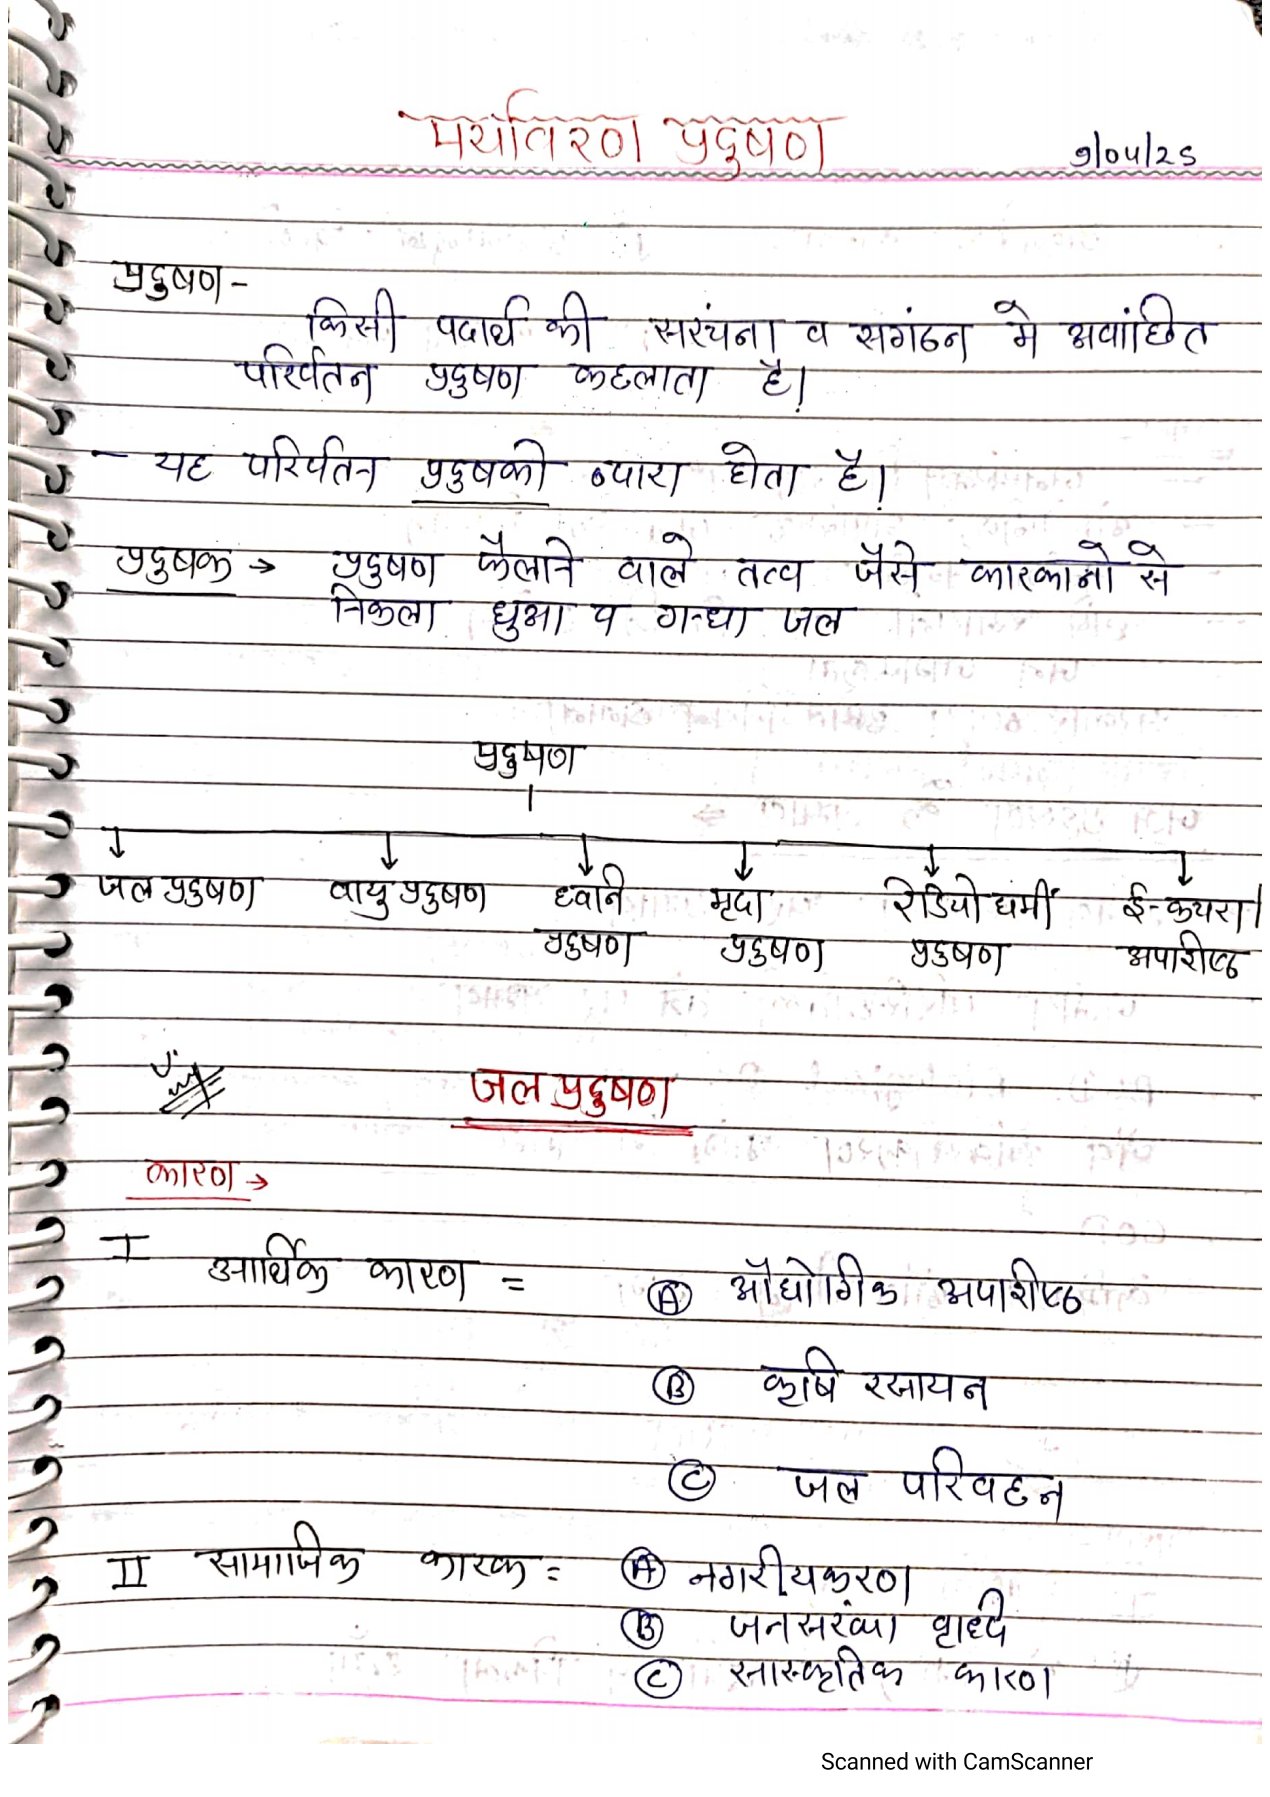 पर्यावरण प्रदुषण
9/04/25
प्रदुषण -
किसी पदार्थ की सरंचना व सगंठन मे अवांछित
परिर्वतन प्रदुषण कहलाता है।
- यह परिर्वतन प्रदुषको व्दारा होता है।
प्रदुषक → प्रदुषण फैलाने वाले तत्व जैसे कारकानो से
निकला धुआ व गन्धा जल
प्रदुषण
जल प्रदुषण वायु प्रदुषण ध्वनि मृदा रेडियोधर्मी ई-कचरा।
प्रदुषण प्रदुषण प्रदुषण अपशीष्ठ
जल प्रदुषण
कारण →
I आर्थिक कारण = (A) औधोगिक अपशीष्ठ
(B) कृषि रसायन
(C) जल परिवहन
II सामाजिक कारक = (A) नगरीयकरण
(B) जनसरंव्या वृध्दि
(C) सास्कृतिक कारण
Scanned with CamScanner